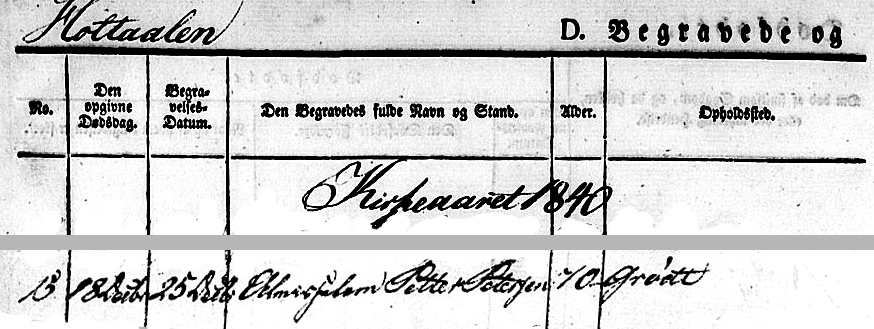 Holtaalen D. Begravede og
No. Den opgivne Dødsdag. Begravelses-Datum. Den Begravedes fulde Navn og Stand. Alder. Opholdssted.
Kirkeaaret 1840
13 18 Decbr 25 Decbr Almisselem Petter Petersen 70 Grødt